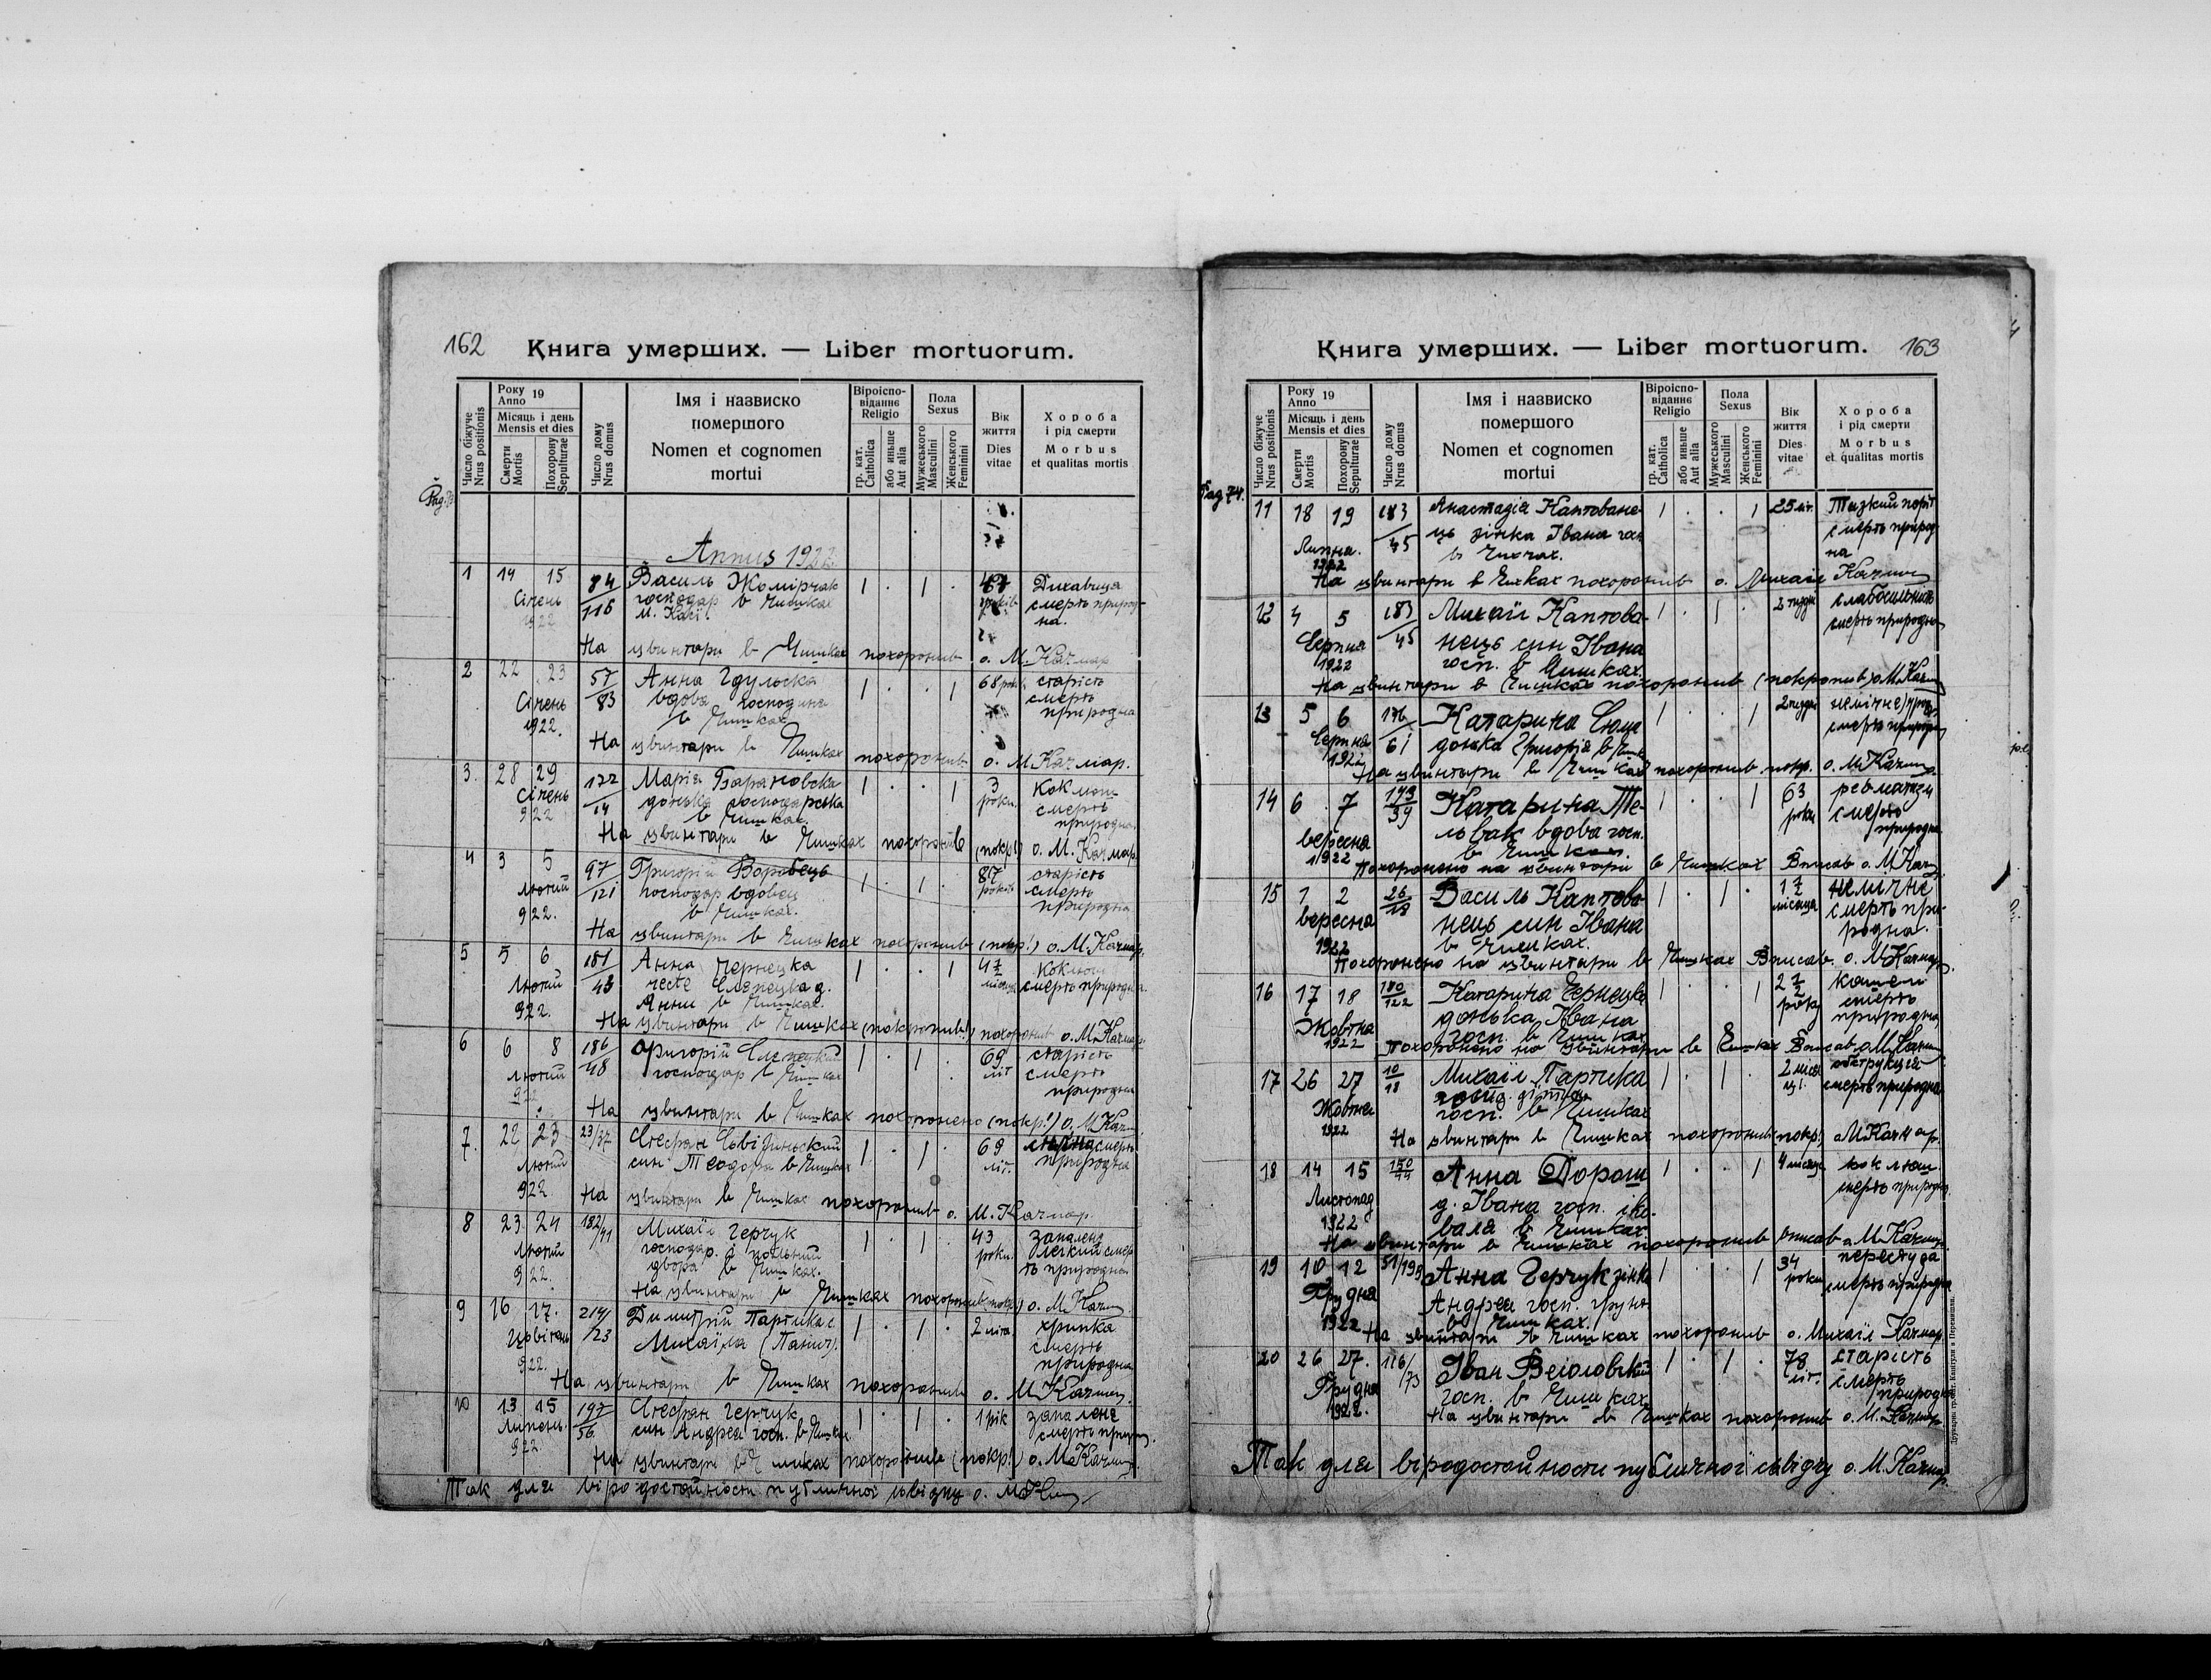 162
Книга умерших. — Liber mortuorum.
Число біжуче
Nrus positionis
Року 19
Anno
Місяць і день
Mensis et dies
Смерти
Mortis
Похорону
Sepulturae
Число дому
Nrus domus
Імя і назвиско
помершого
Nomen et cognomen
mortui
Віроіспо-
віданнє
Religio
гр. кат.
Catholica
або иньше
Aut alia
Пола
Sexus
Мужеського
Masculini
Женського
Feminini
Вік
життя
Dies
vitae
Хороба
і рід смерти
Morbus
et qualitas mortis
Annus 1922.
1 14 15 84 Василь Жомірчак 1 . 1 . Дихавиця
Січень 116 господар в Чишках смерть природ-
1922 на.
На цвинтари в Чишках похоронив о. М. Качмар
2 22 23 57 Анна Гдульска 1 . . 1 68 рок. старість
Січень 83 вдова господиня смерть
1922. в Чишках природна
На цвинтари в Чишках похоронив о. М. Качмар.
3. 28 29 122 Марія Барановска 1 . . 1 3 коклюш
Січень 14 донька господарська роки. смерть
922 в Чишках. природна.
На цвинтари в Чишках похоронив (покр!) о. М. Качмар
4 3 5 97 Григорій Воробець 1 . 1 . 87 старість
лютий 121 господар вдовец років смерть
922. в Чишках. природна
На цвинтари в Чишках похоронив (покр!) о. М. Качмар.
5 5 6 181 Анна Чернецка 1 . . 1 коклюш
Лютий 43 смерть природна.
922. Анни в Чишках.
На цвинтари в Чишках (покропив!) похоронив о. М. Качмар
6 6 8 186 Григорій Слепецкий 1 . 1 . 69 старість
лютий 48 господар в Чишках літ смерть
922 природна
На цвинтари в Чишках похоронено (покр!) о. М. Качм
7. 22 23 23/37 Стефан Сьвідиньский 1 . 1 . 69 смерть
лютий син Теодора в Чишках літ. природна
922 На цвинтари в Чишках похоронив о. М. Качмар.
8 23 24 182/41 Михаїл Герчук 1 . 1 . 43 запаленє
лютий господар. і польний роки. легких смер
922. двора в Чишках. ть природна
На цвинтари в Чишках похоронив (покр!) о. М. Качм
9 16 17. 214/23 Димитрій Партика с. 1 . 1 . 2 літа. хрипка
Цьвітень Михаїла (Панич). смерть
922. природна
На цвинтари в Чишках похоронив о. М. Качмар.
10 13 15 197 Стефан Герчук 1 . 1 . 1 рік запаленє
Липень. 56 син Андрея госп. в Чишках смерть природ.
922
На цвинтари в Чишках похоронив (покр!) о. М. Качмар.
Так для віродостойности публичної сьвідчу о. М. Качм
163
Книга умерших. — Liber mortuorum.
Число біжуче
Nrus positionis
Року 19
Anno
Місяць і день
Mensis et dies
Смерти
Mortis
Похорону
Sepulturae
Число дому
Nrus domus
Імя і назвиско
помершого
Nomen et cognomen
mortui
Віроіспо-
віданнє
Religio
гр. кат.
Catholica
або иньше
Aut alia
Пола
Sexus
Мужеського
Masculini
Женського
Feminini
Вік
життя
Dies
vitae
Хороба
і рід смерти
Morbus
et qualitas mortis
Pag 74.
11 18 19 183 Анастазія Каптоване- 1 . . 1 25 літ. Тяжкий поріг
Липня. 45 ць жінка Івана госп смерть природ
1922 в Чишках. на
На цвинтари в Чишках похоронив о. Михаїл Качмар
12 4 5 183 Михаїл Каптова- 1 . 1 . 2 тиждні слабосильність
Серпня 45 нець син Івана смерть природна
1922 госп. в Чишках.
На цвинтари в Чишках похоронив (покропив) о. М. Качм
13 5 6 176 Катарина Сюма 1 . . 1 2 тиждні
Серпня 61 донька Григорія в Чишк смерть природн
1922
На цвинтари в Чишках похоронив покр. о. М. Качмар.
14 6 7 173 Катарина Те- 1 . . 1 63 ревматизм
вересня 39 львак вдова госп. роки смерть
1922 в Чишках. природна.
Похоронено на цвинтари в Чишках Вписав о. М. Качм
15 1 2 26 Василь Каптова- 1 . 1 . 1½ немічне
вересня 18 нець син Івана місяця смерть при-
1922 в Чишках. родна.
Похоронено на цвинтари в Чишках Вписав. о. М. Качмар.
16 17 18 180 Катарина Чернецка 1 . . 1 2½ кашель
Жовтня 122 донька Івана року смерть
1922 госп. в Чишках природна
Похоронено на цвинтари в Чишках Вписав о. М. Качм
17 26 27 10 Михаїл Партика 1 . 1 . 2 міся обструкція
Жовтня 18 ці. смерть природна
1922 госп. в Чишках
На цвинтари в Чишках похоронив (покр!) о. М. Качмар.
18 14 15 150 Анна Дорош 1 . . 1 4 місяці коклюш
Листопад 44 д. Івана госп. і ко- смерть природна.
1922 валя в Чишках.
На цвинтари в Чишках похоронив Вписав о. М. Качмар.
19 10 12 51/199 Анна Герчук жінка 1 . . 1 34 перестуда
Грудня Андрея госп. грунт роки смерть природна
1922 в Чишках.
На цвинтари в Чишках похоронив о. Михаїл Качмар.
20 26 27. 116/73 Іван Веіоловский 1 . 1 . 78 старість
Грудня госп. в Чишках літ. смерть
1922. природна
На цвинтари в Чишках похоронив о. М. Качмар
Так для віродостойности публичної сьвідчу о. М. Качмар.